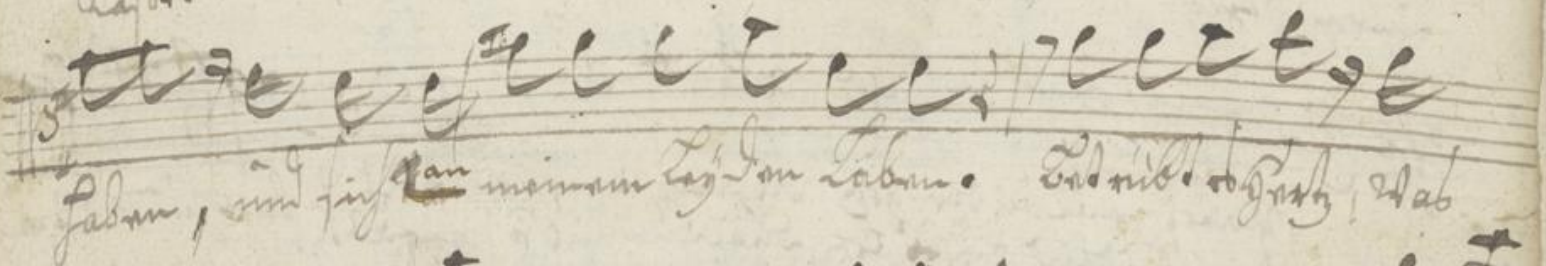 haben, und sich an meinem Leyden Laben. Betrübtes Hertz, Was